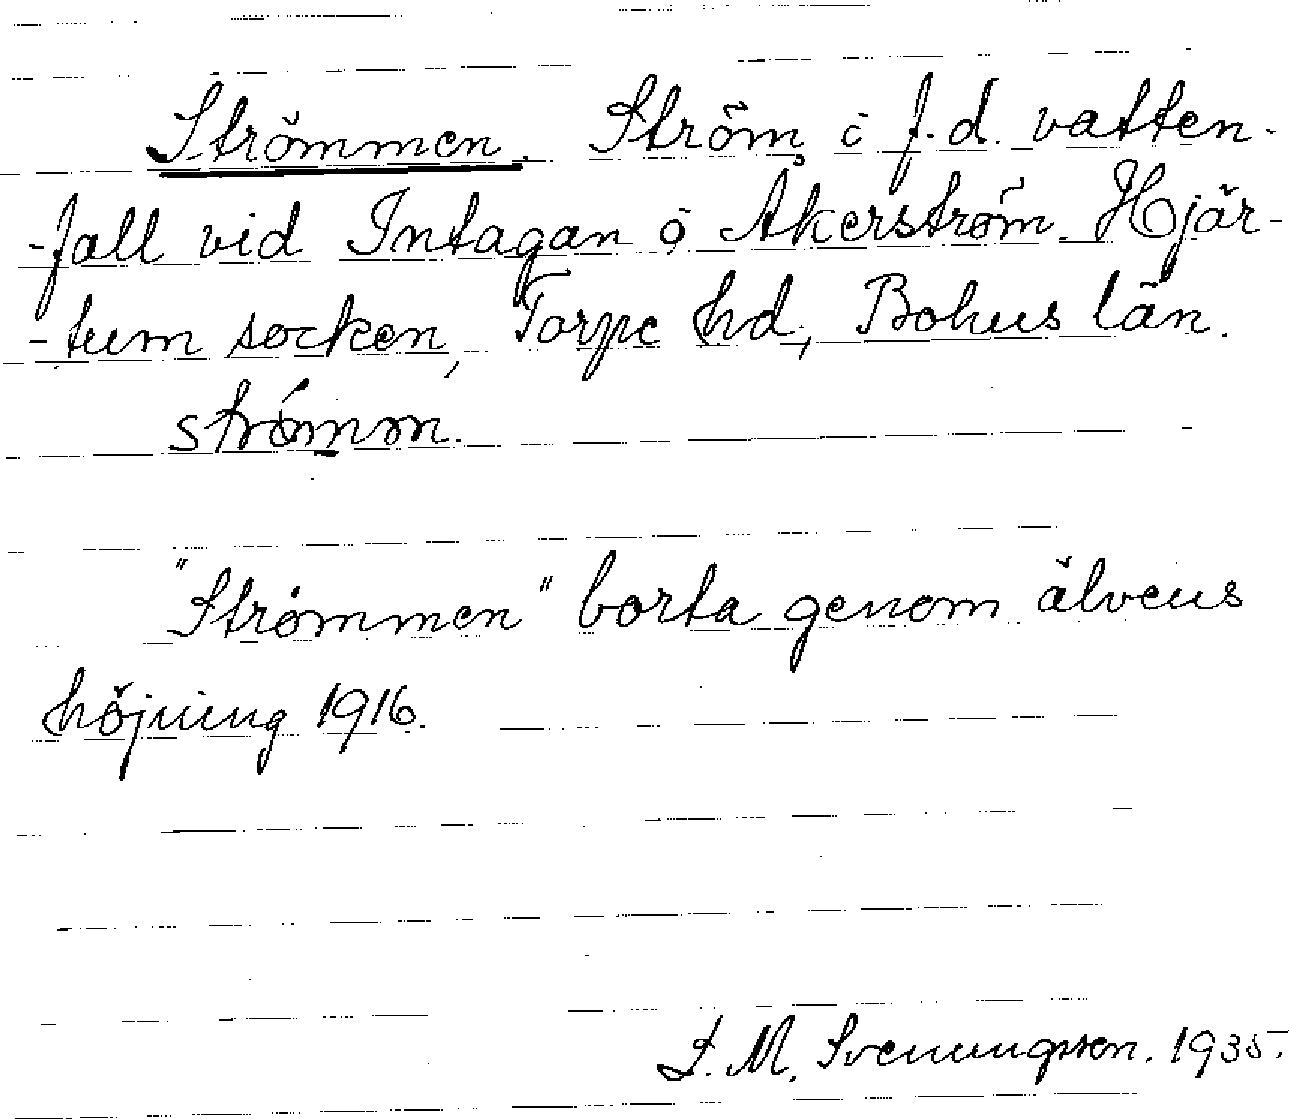 Strömmen. Ström i f.d. vatten-
-fall vid Intagan o Åkerström. Hjär-
-tum socken, Torpe hd., Bohus län.
strömm.
"Strömmen" borta genom älvens
höjning 1916.
S. M. Svenungsson. 1935.